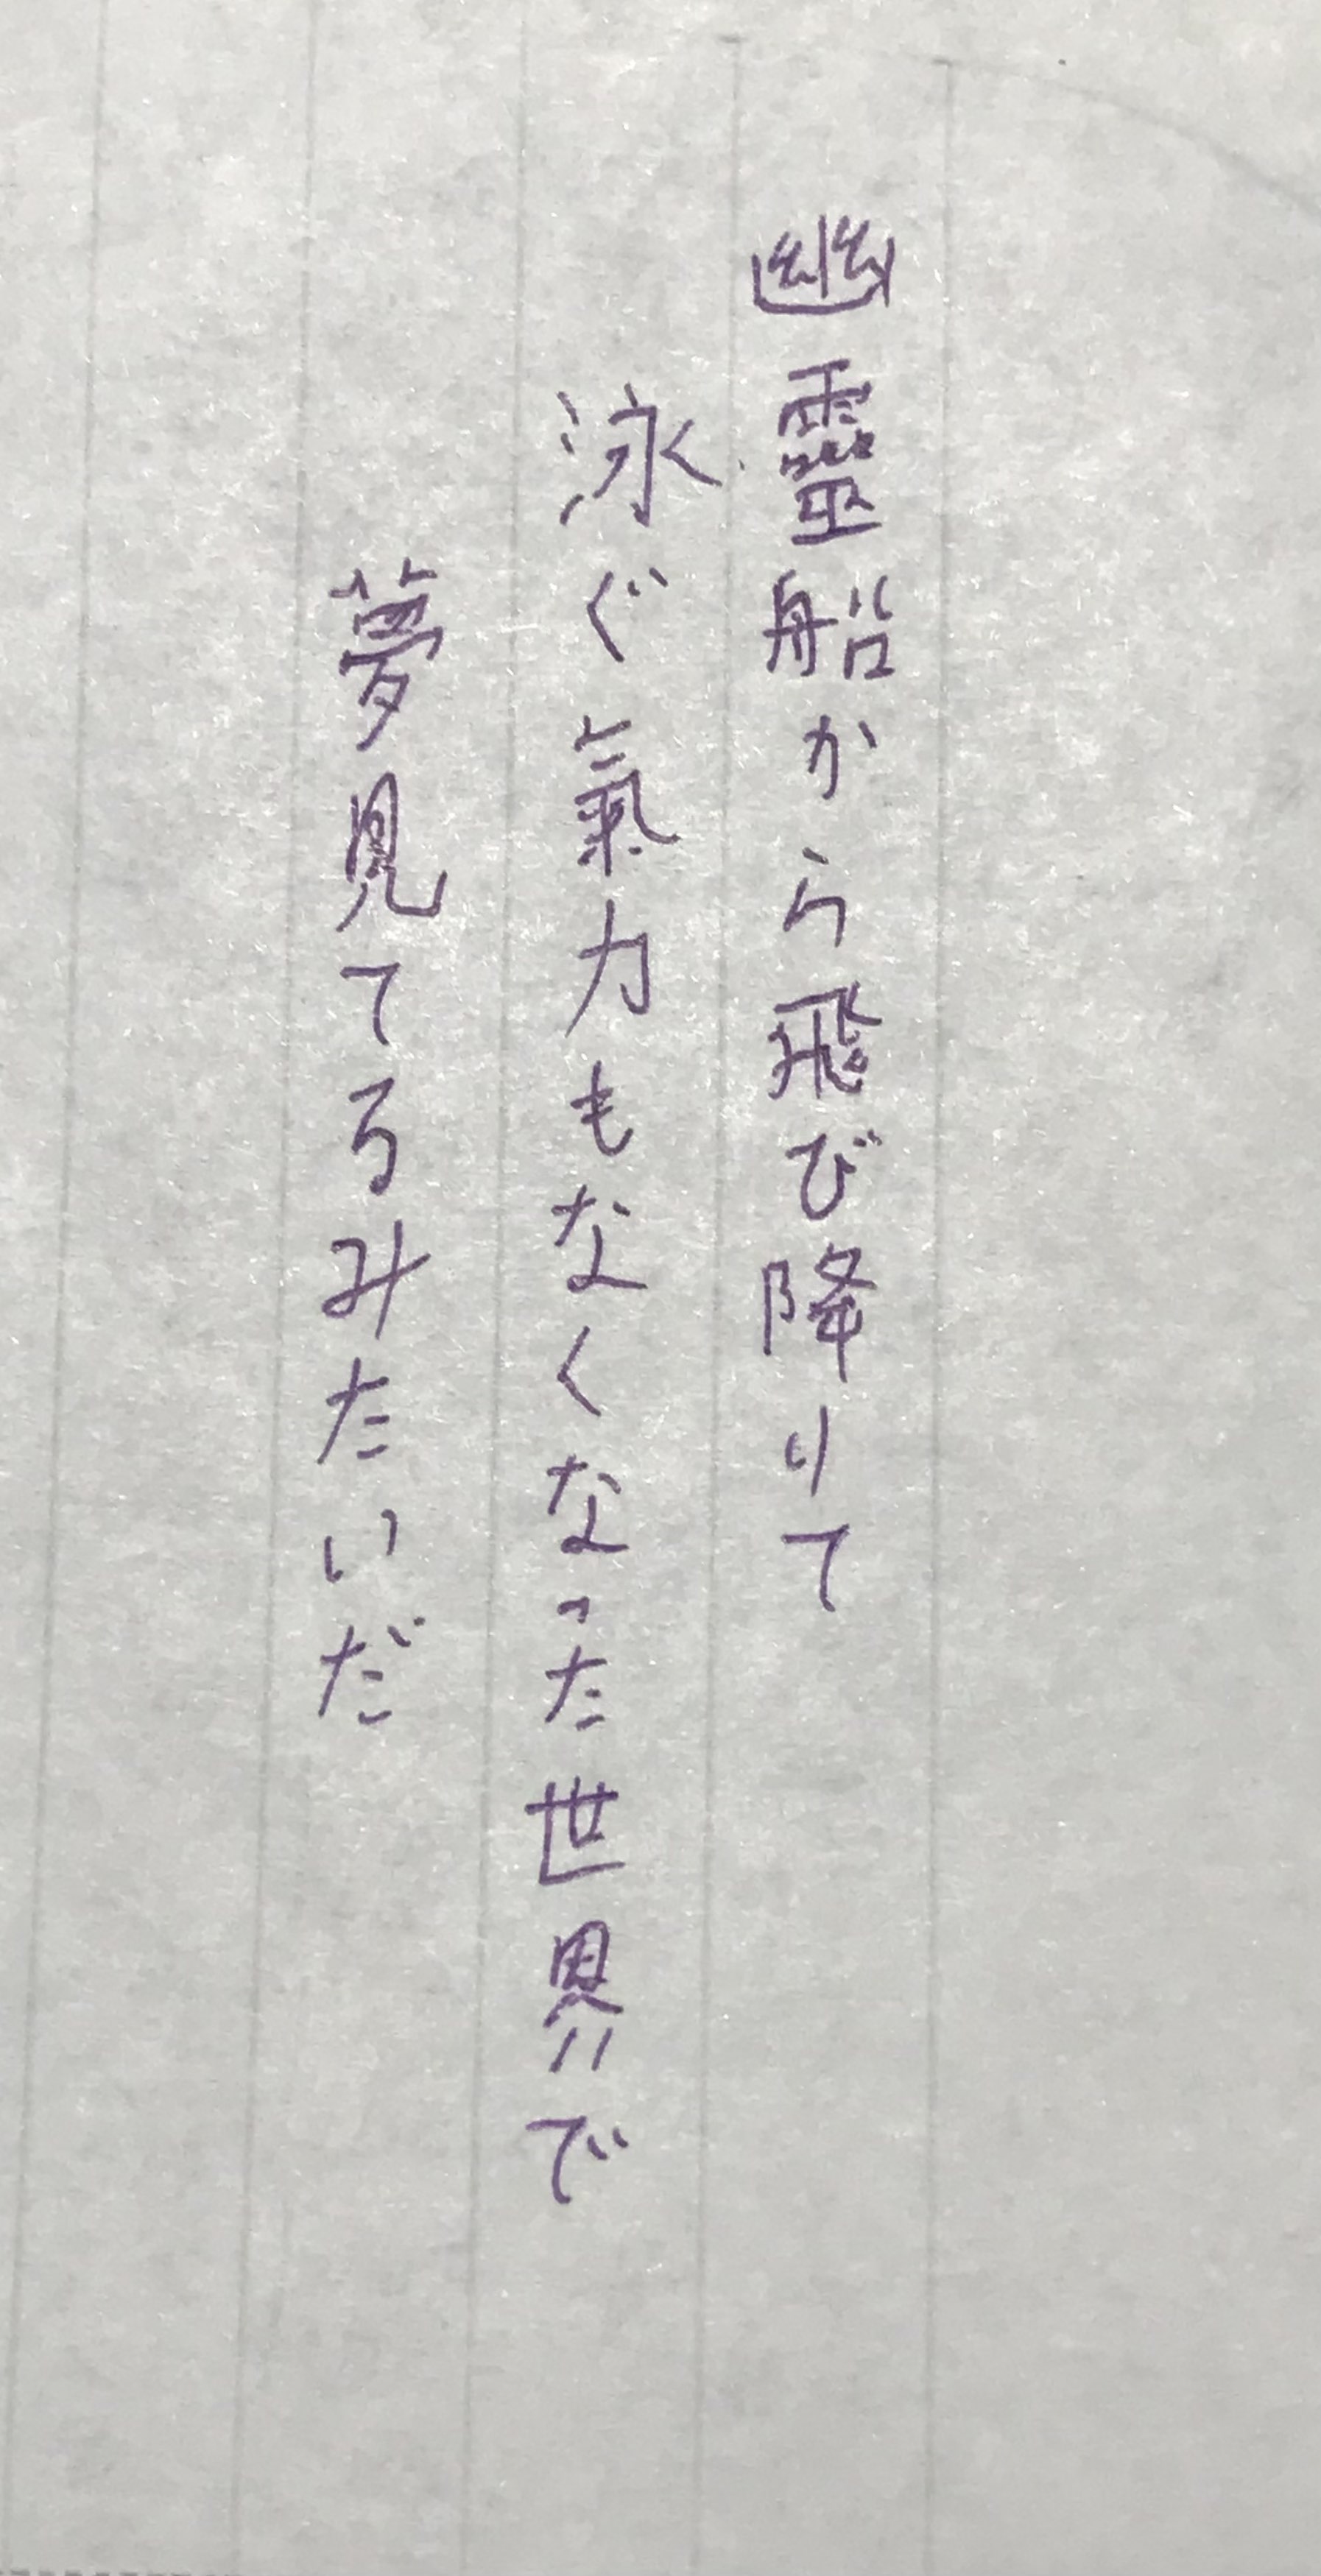 幽靈船から飛び降りて
泳ぐ氣力もなくなった世界で
夢見てるみたいだ